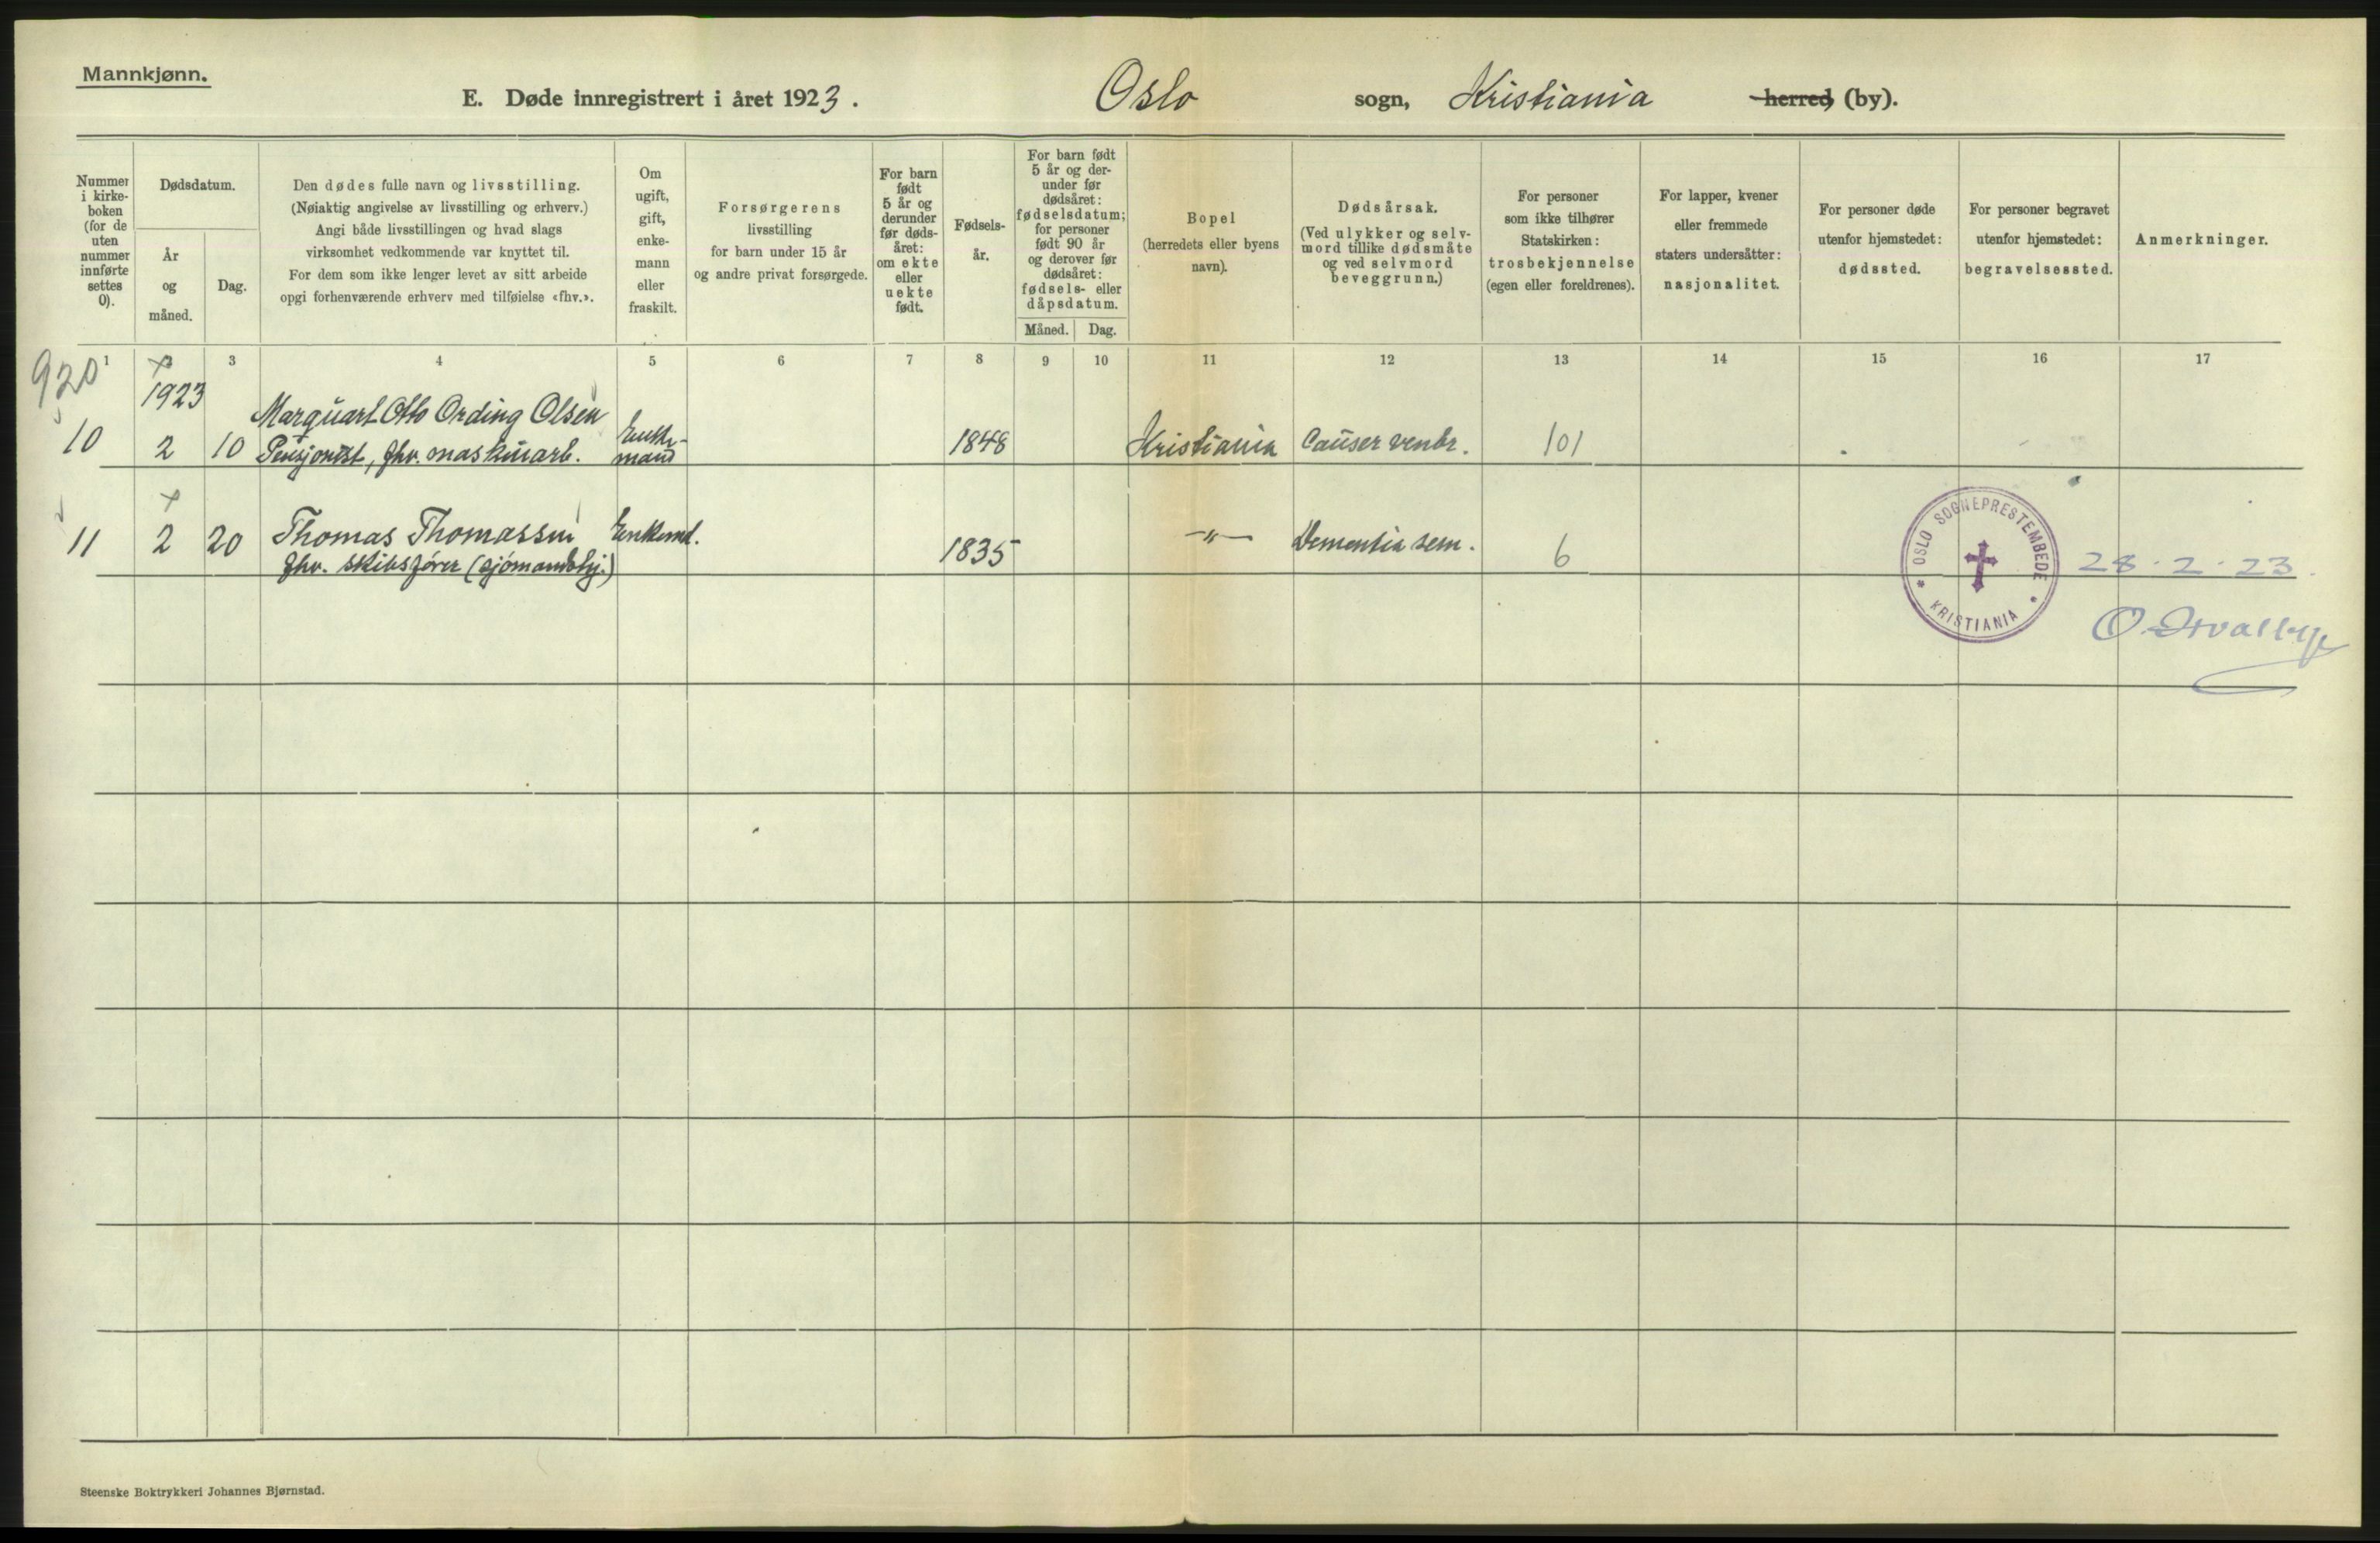 Mannkjønn.
E. Døde innregistrert i året 1923. Oslo sogn, Kristiania herred, (by).
Nummer i kirke- boken (for de uten nummer innførte settes 0).
Dødsdatum.
År og måned.
Dag.
Den dødes fulle navn og livsstilling.
(Nøiaktig angivelse av livsstilling og erhverv.)
Angi både livsstillingen og hvad slags
virksomhet vedkommende var knyttet til.
For dem som ikke lenger levet av sitt arbeide
opgi forhenværende erhverv med tilføielse «fhv.».
Om ugift, gift, enke- mann eller fraskilt.
Forsørgerens
livsstilling
for barn under 15 år
og andre privat forsørgede.
For barn født 5 år og derunder før døds- året: om ekte eller uekte født.
Fødsels- år.
For barn født 5 år og der- under før dødsåret: fødselsdatum; for personer født 90 år og derover før dødsåret: fødsels- eller dåpsdatum.
Måned. Dag.
Bopel
(herredets eller byens
navn).
Dødsårsak.
(Ved ulykker og selv-
mord tillike dødsmåte
og ved selvmord
beveggrunn.)
For personer
som ikke tilhører
Statskirken:
trosbekjennelse
(egen eller foreldrenes).
For lapper, kvener
eller fremmede
staters undersåtter:
nasjonalitet.
For personer døde
utenfor hjemstedet:
dødssted.
For personer begravet
utenfor hjemstedet:
begravelsessted.
Anmerkninger.
1 3 4 5 6 7 8 9 10 11 12 13 14 15 16 17
920
1923
Marquart Otto Ording Olsen
10 2 10 Pensjonist, fhv. maskinarb. Enke- mand 1848 Kristiania Causer ventr. 101
11 2 20 Thomas Thomassen Enkemd. 1835 -"- Dementia sen. 6
fhv. skibsfører
OSLO SOGNEPRESTEMBEDE
KRISTIANIA
28.2.23.
Steenske Boktrykkeri Johannes Bjørnstad.